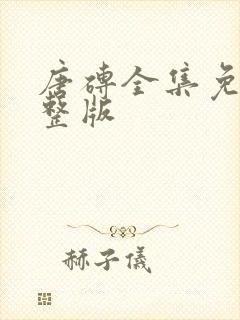 唐砖全集免
整版
赫子仪